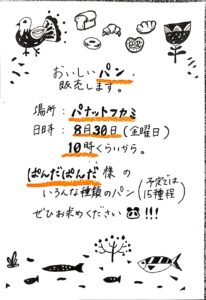 おいしいパン、
販売します。
場所：パナットフカミ
日時：8月30日（金曜日）
10時くらいから。
ぱんだぱんだ様の
いろんな種類のパン（予定では、15種程）
ぜひお求めください!!!